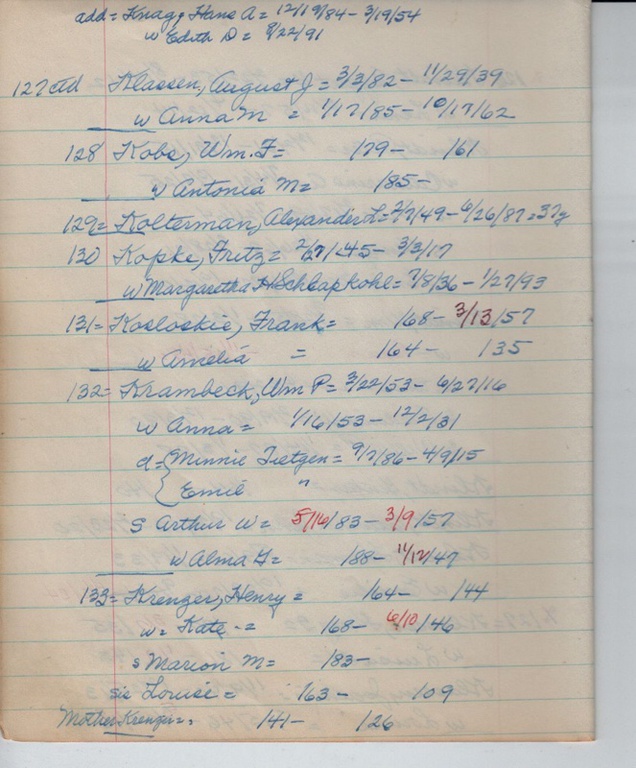 add = Knagg, Hans A = 12/19/84 - 3/19/54
w Edith D = 9/22/91
127 ctd Klassen, August J = 3/3/82 - 11/29/39
w Anna M = 1/17/85 - 10/17/62
128 Kobs, Wm. F = /79 - /61
w Antonia M = /85 -
129 = Kolterman, Alexander L = 2/7/49 - 6/26/87 = 37y
130 Kopke, Fritz = /45 - 3/3/17
w Margaretha H Schlapkohl = 7/8/36 - 1/27/93
131 = Kosloskie, Frank = /68 - 3/13/57
w Amelia = /64 - /35
132 = Krambeck, Wm P = 3/22/53 - 6/27/16
w Anna = 1/16/53 - 12/2/31
d = { Minnie Tietgen = 9/7/86 - 4/9/15
{ Emil "
s Arthur W = 5/16/83 - 3/9/57
w Alma G = /88 - 11/12/47
133 = Krenger, Henry = /64 - /44
w = Kate - = /68 - 6/10/46
s Marion M = /83 -
sis Louise = /63 - /09
Mother Krenger = /41 - /26